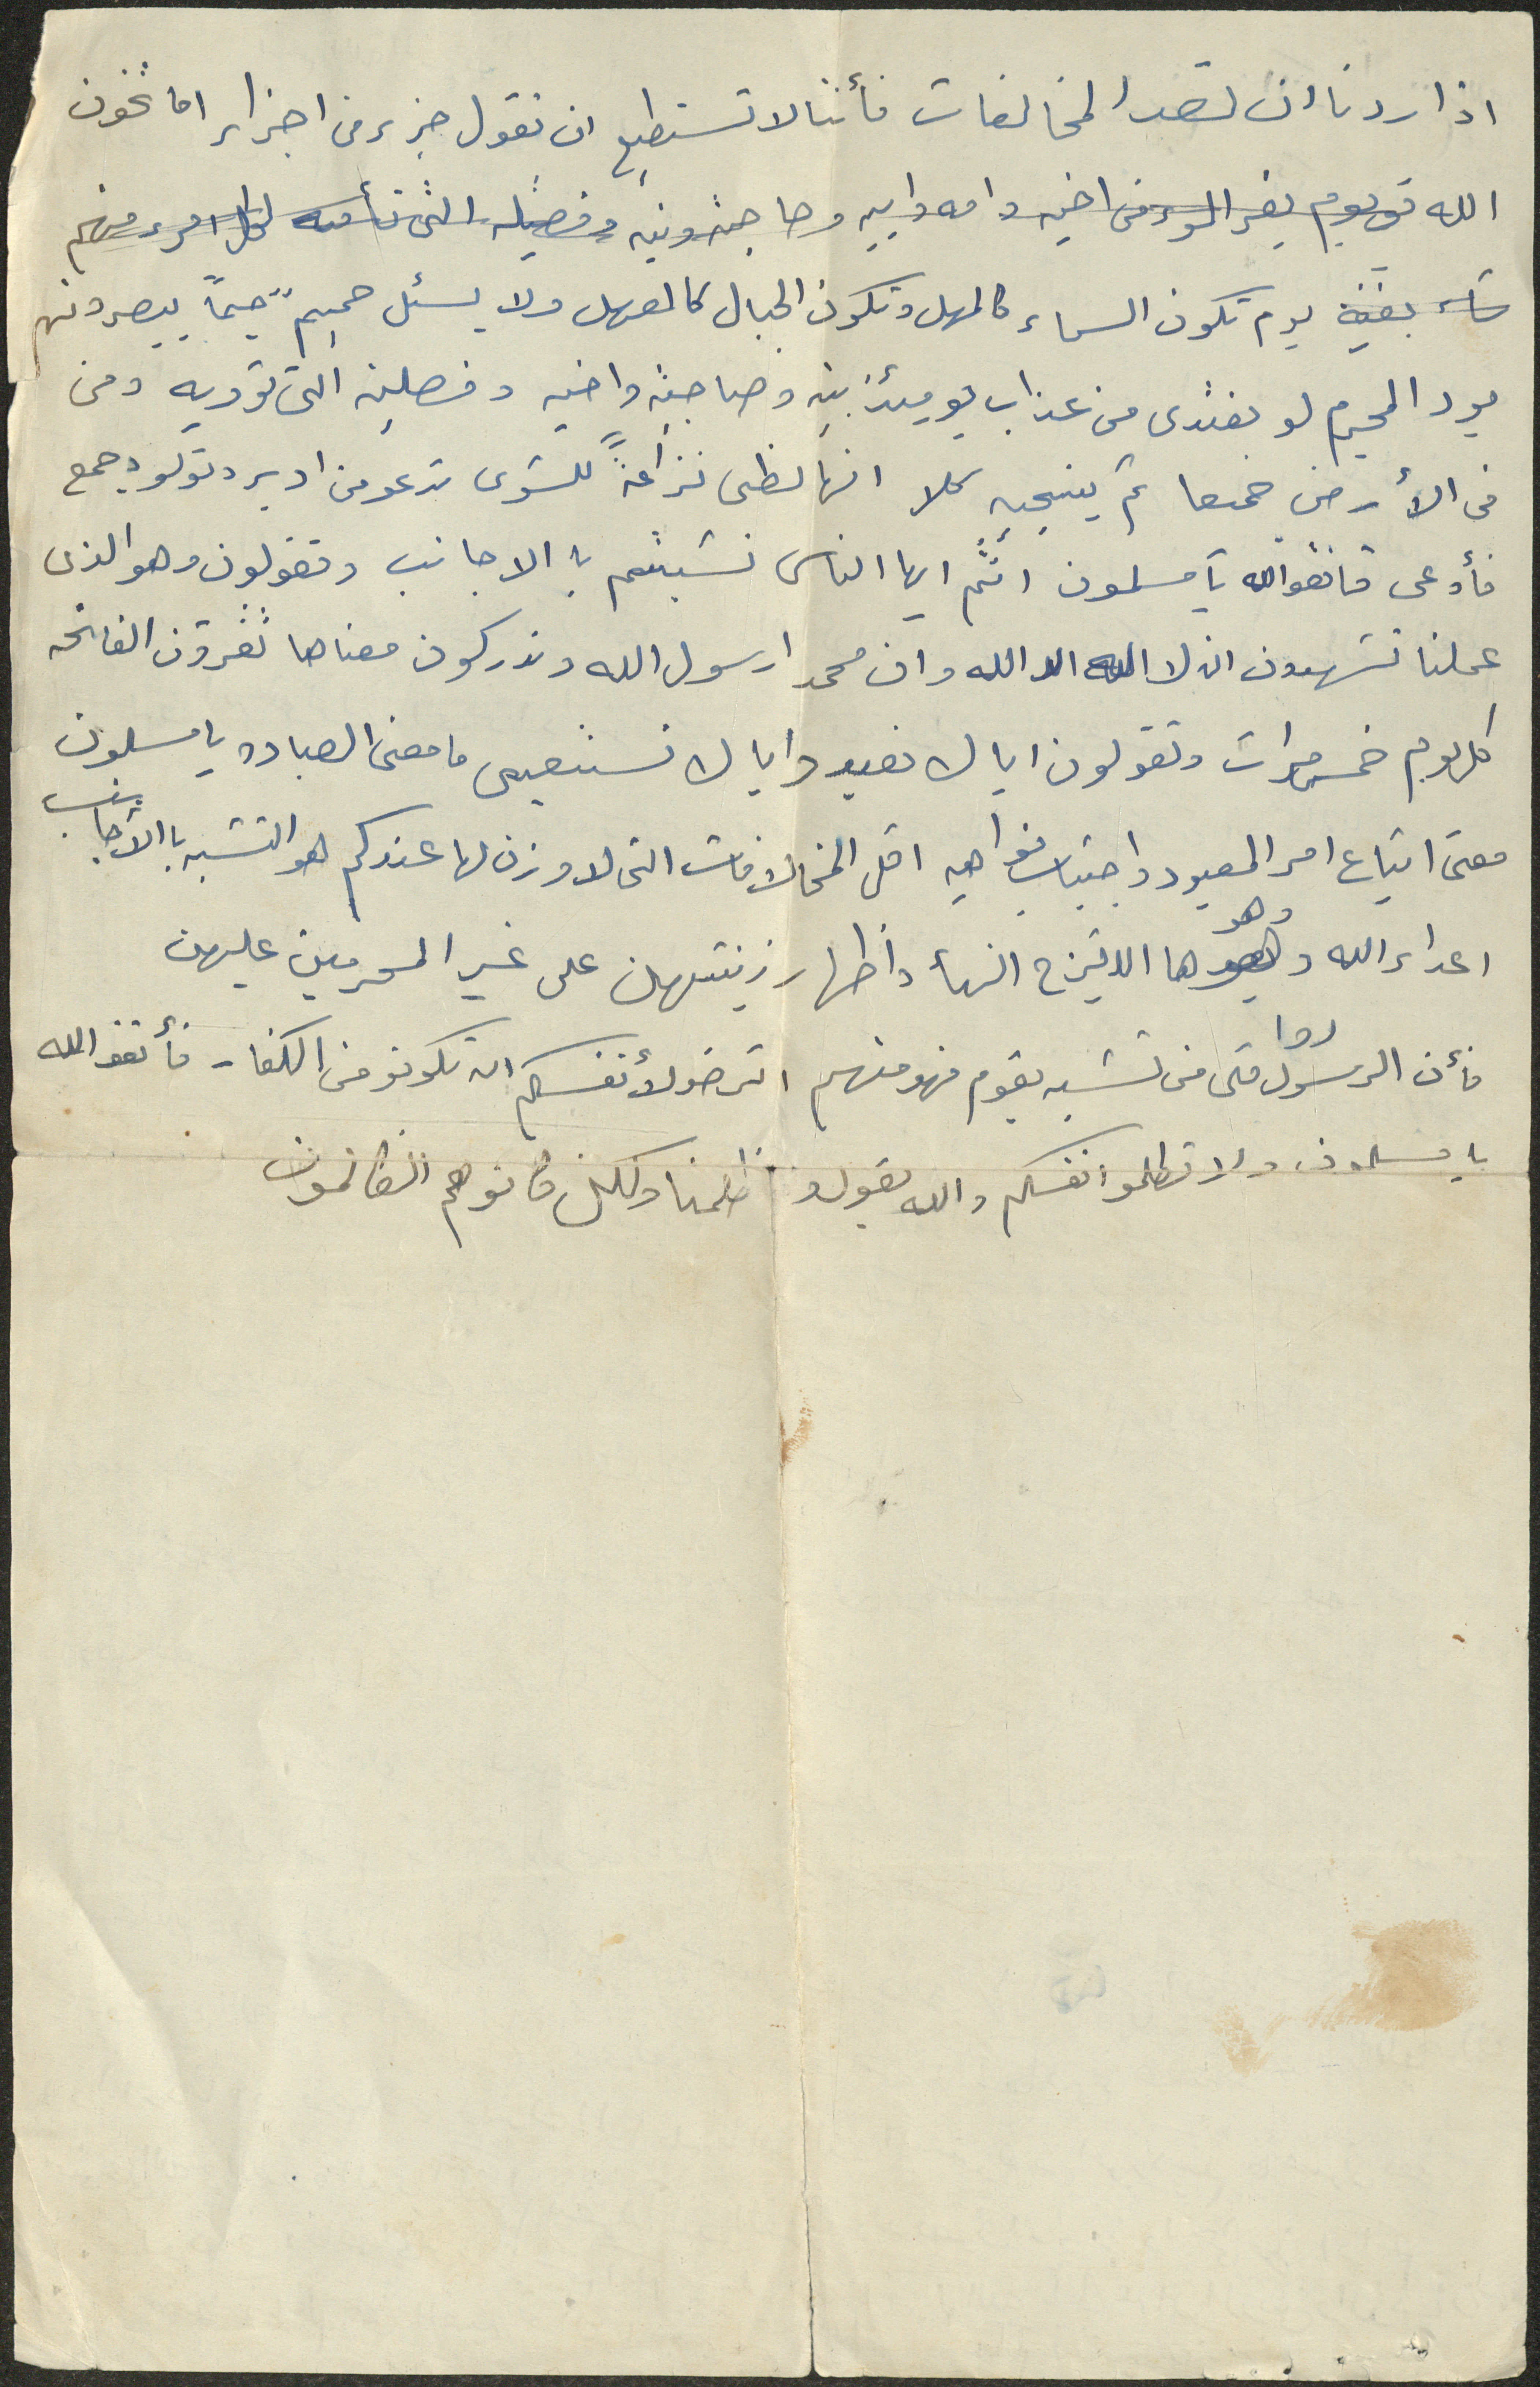 اذا اردنا ان نعد المخالفات فأننا لا تستطيع ان نقول جزء من اجزاء اما تخون
الله يوم يفر المرء من اخيه وامه وابيه وصاحبته وبنيه وفصيله التى تأميه لكل امرء منهم
شاء يغنيه يوم تكون السماء كالمهل وتكون الجبال كالعهل ولا يسئل حميم حيماً يبصرونهم
يود المجرم لو يفتدى من عذاب يوميئذ بنيه وصاحبته واخيه وفصليته التى تؤويه ومن
فى الأرض جميعا ثم ينجيه كلا انها لظى نزاعةً للشوى تدعو من ادبر وتولو وجمع
فأوعى فاتقوا الله يا مسلمون انتم ايها الناس تشبيتم با الاجانب وتقولون وهو الذى
عملنا تشهدون ان لا اله الا الله وان محمد ارسول الله وتدركون معناها تقرؤن الفاتحه
كل يوم خمس مرات وتقولون اياك نعبد واياك نستعين ما معنى العباده يا مسلمون
معنى اتباع امر المعبود واجتباب نواهيه اقل المخالافات التى لا وزن لها عندكم هو التشبه با الأجانب
اعداء الله وهو ها التبزج النساء واظهار زينتهن على غير المحرمين عليهن
فأن الرسول قال من تشبه بقوم فهو منهم اترضو لأنفسكم ان تكونو من الكفار فأتقو الله
يا مسلمون ولا تظلمو انفسكم والله يقول وما ظلمنا ولكن كانو هم الظالمون